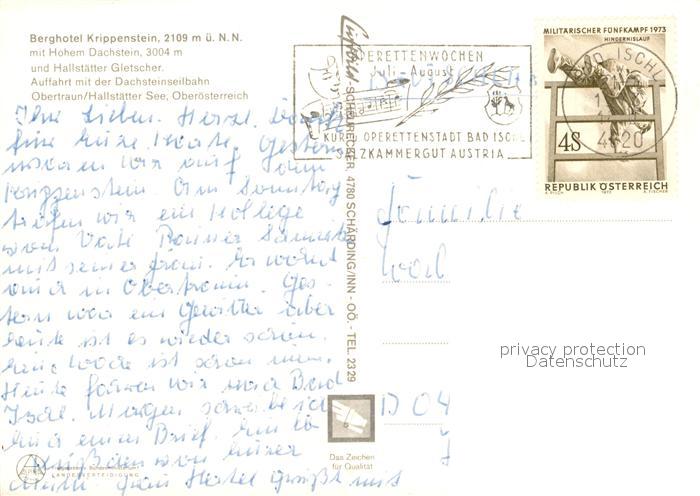 Berghotel Krippenstein, 2109 m ü. N.N.
mit Hohem Dachstein, 3004 m
und Hallstätter Gletscher.
Auffahrt mit der Dachsteinseilbahn
Obertraun/Hallstätter See, Oberösterreich
Ihr Lieben. Herzl.
eine kurze Karte. Gestern
waren wir auf dem
Krippenstein. Am Sonntag
trafen wir ein Kollege
von Vati Rainer
mit seiner Frau. Er wohnt
auch in Obertraun. Ges-
tern war ein Gewitter aber
heute ist es wieder schön.
eine Woche ist schon um.
Heute fahren wir nach Bad
Ischl. Morgen schreibe ich
einen Brief.
Grüßen von
Frau Hertel grüßt mit
LANDESVERTEIDIGUNG
SCHEURECKER, 4780 SCHÄRDING/INN - OÖ. - TEL. 2329
OPERETTENWOCHEN
Juli-August
KURORT OPERETTENSTADT BAD ISCHL
SALZKAMMERGUT AUSTRIA
BAD ISCHL
4820
MILITÄRISCHER FÜNFKAMPF 1973
HINDERNISLAUF
4S
REPUBLIK ÖSTERREICH
Familie
D 04
privacy protection
Datenschutz
Das Zeichen
für Qualität